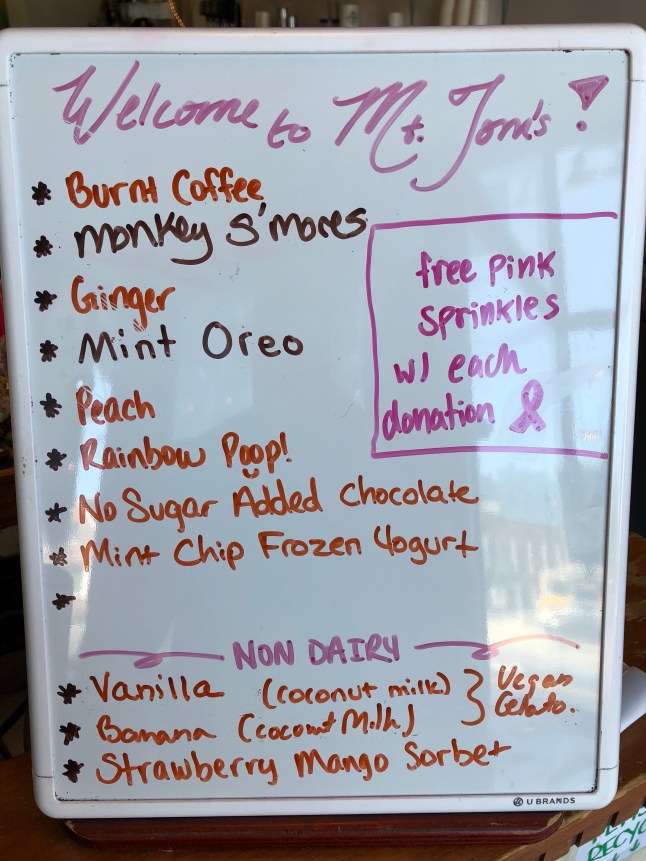 Welcome to Mt. Tom's!
* Burnt Coffee
* Monkey S'mores
* Ginger
* Mint Oreo
* Peach
* Rainbow Poop!
* No Sugar Added Chocolate
* Mint Chip Frozen Yogurt
*
free pink
sprinkles
w/ each
donation
NON DAIRY
* Vanilla (coconut milk)
* Banana (coconut Milk)
} Vegan
Gelato.
* Strawberry Mango Sorbet
U BRANDS
RECYC